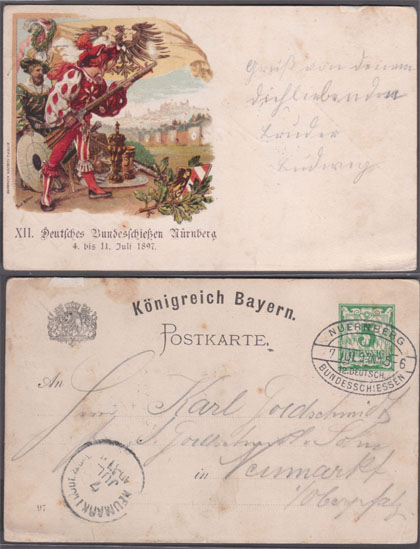 Gruß von deinem
dichliebenden
Bruder
Ludwig
XII. Deutsches Bundesschießen Nürnberg
4. bis 11. Juli 1897.
Königreich Bayern.
POSTKARTE.
NUERNBERG
7 JUL
5-6
12. DEUTSCH.
BUNDESSCHIESSEN
5
An
Herrn Karl Goldschmidt
in Neumarkt
i/Oberpfalz
NEUMARKT
7
JUL
97